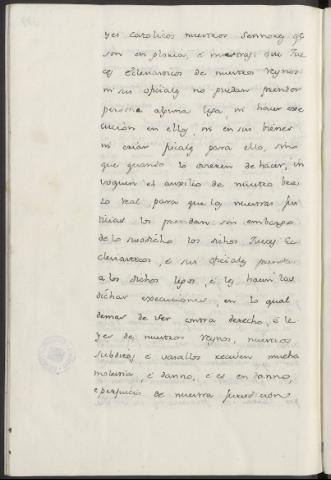 yes catolicos nuestros Sennores q̃
son en planta, é nuestras que Jue
ces Eclesiasticos de nuestros Reynos
ni sus oficiales no puedan prender
persona alguna lega, ni hacer exe
cucion en ellos, ni en sus bienes
ni criar fiscales para ello, sino
que quando lo oviesen de hacer, in
voquen el auxilio de nuestro bra
zo real, para que los nuestras jus
ticias los prendan sin embargo
de lo susodicho los dichos Jueces Ec
clesiasticos, é sus oficiales prenden
a los dichos legos, é les hacen las
dichas execuciones, en lo qual
demas de ser contra derecho, é le
yes de nuestros Reynos, nuestros
subditos, é vasallos reciven mucha
molestia, é danno, é es en danno,
é perjuicio de nuestra jurisdicion